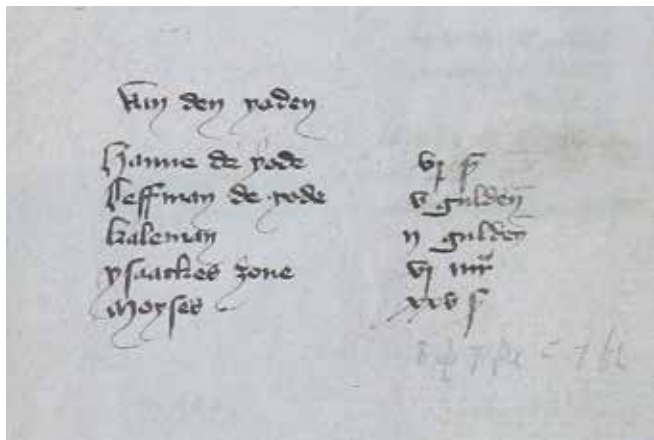 Van den yoden
Hanne de yode vj ß
Leffman de yode v gulden
kaleman ij gulden
ysaackes zone vj mr
Moyses xxv ß